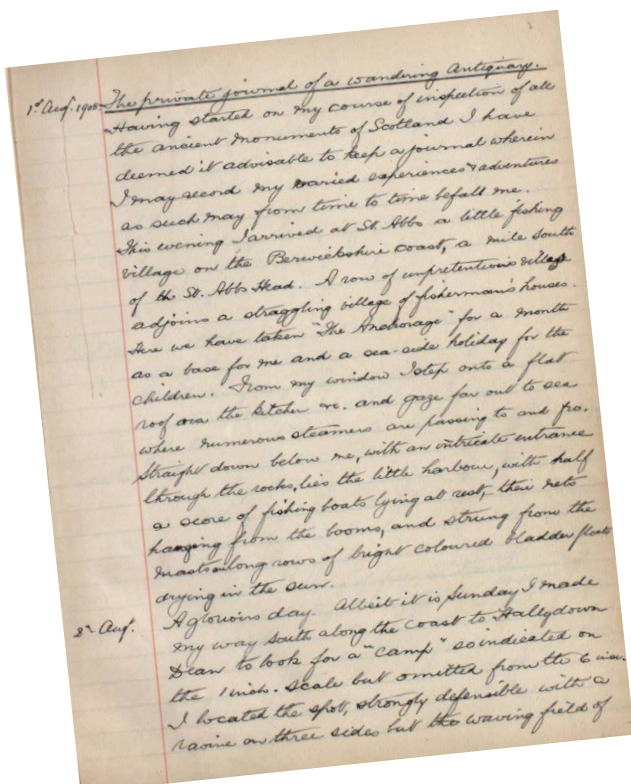 1st Aug. 1908 The private journal of a wandering Antiquary.
Having started on my course of inspection of all
the ancient Monuments of Scotland I have
deemed it advisable to keep a journal wherein
I may record my varied experiences & adventures
as such may from time to time befall me.
This evening I arrived at St. Abbs a little fishing
village on the Berwickshire coast, a mile south
of the St. Abbs Head. A row of unpretentious village
adjoins a straggling village of fisherman's houses.
Here we have taken "The Anchorage" for a month
as a base for me and a sea-side holiday for the
children. From my window I step onto a flat
roof over the kitchen &c. and gaze far out to sea
where numerous steamers are passing to and fro.
Straight down below me, with an intricate entrance
through the rocks, lies the little harbour, with half
a score of fishing boats lying at rest, their nets
hanging from the booms, and strung from the
masts along rows of bright coloured bladder floats
drying in the sun.
2nd Aug. A glorious day. Albeit it is Sunday I made
my way south along the coast to Hallydown
Dean to look for a "camp" so indicated on
the 1 inch. scale but omitted from the 6 inch.
I located the spot, strongly defensible with a
ravine on three sides but the waving field of